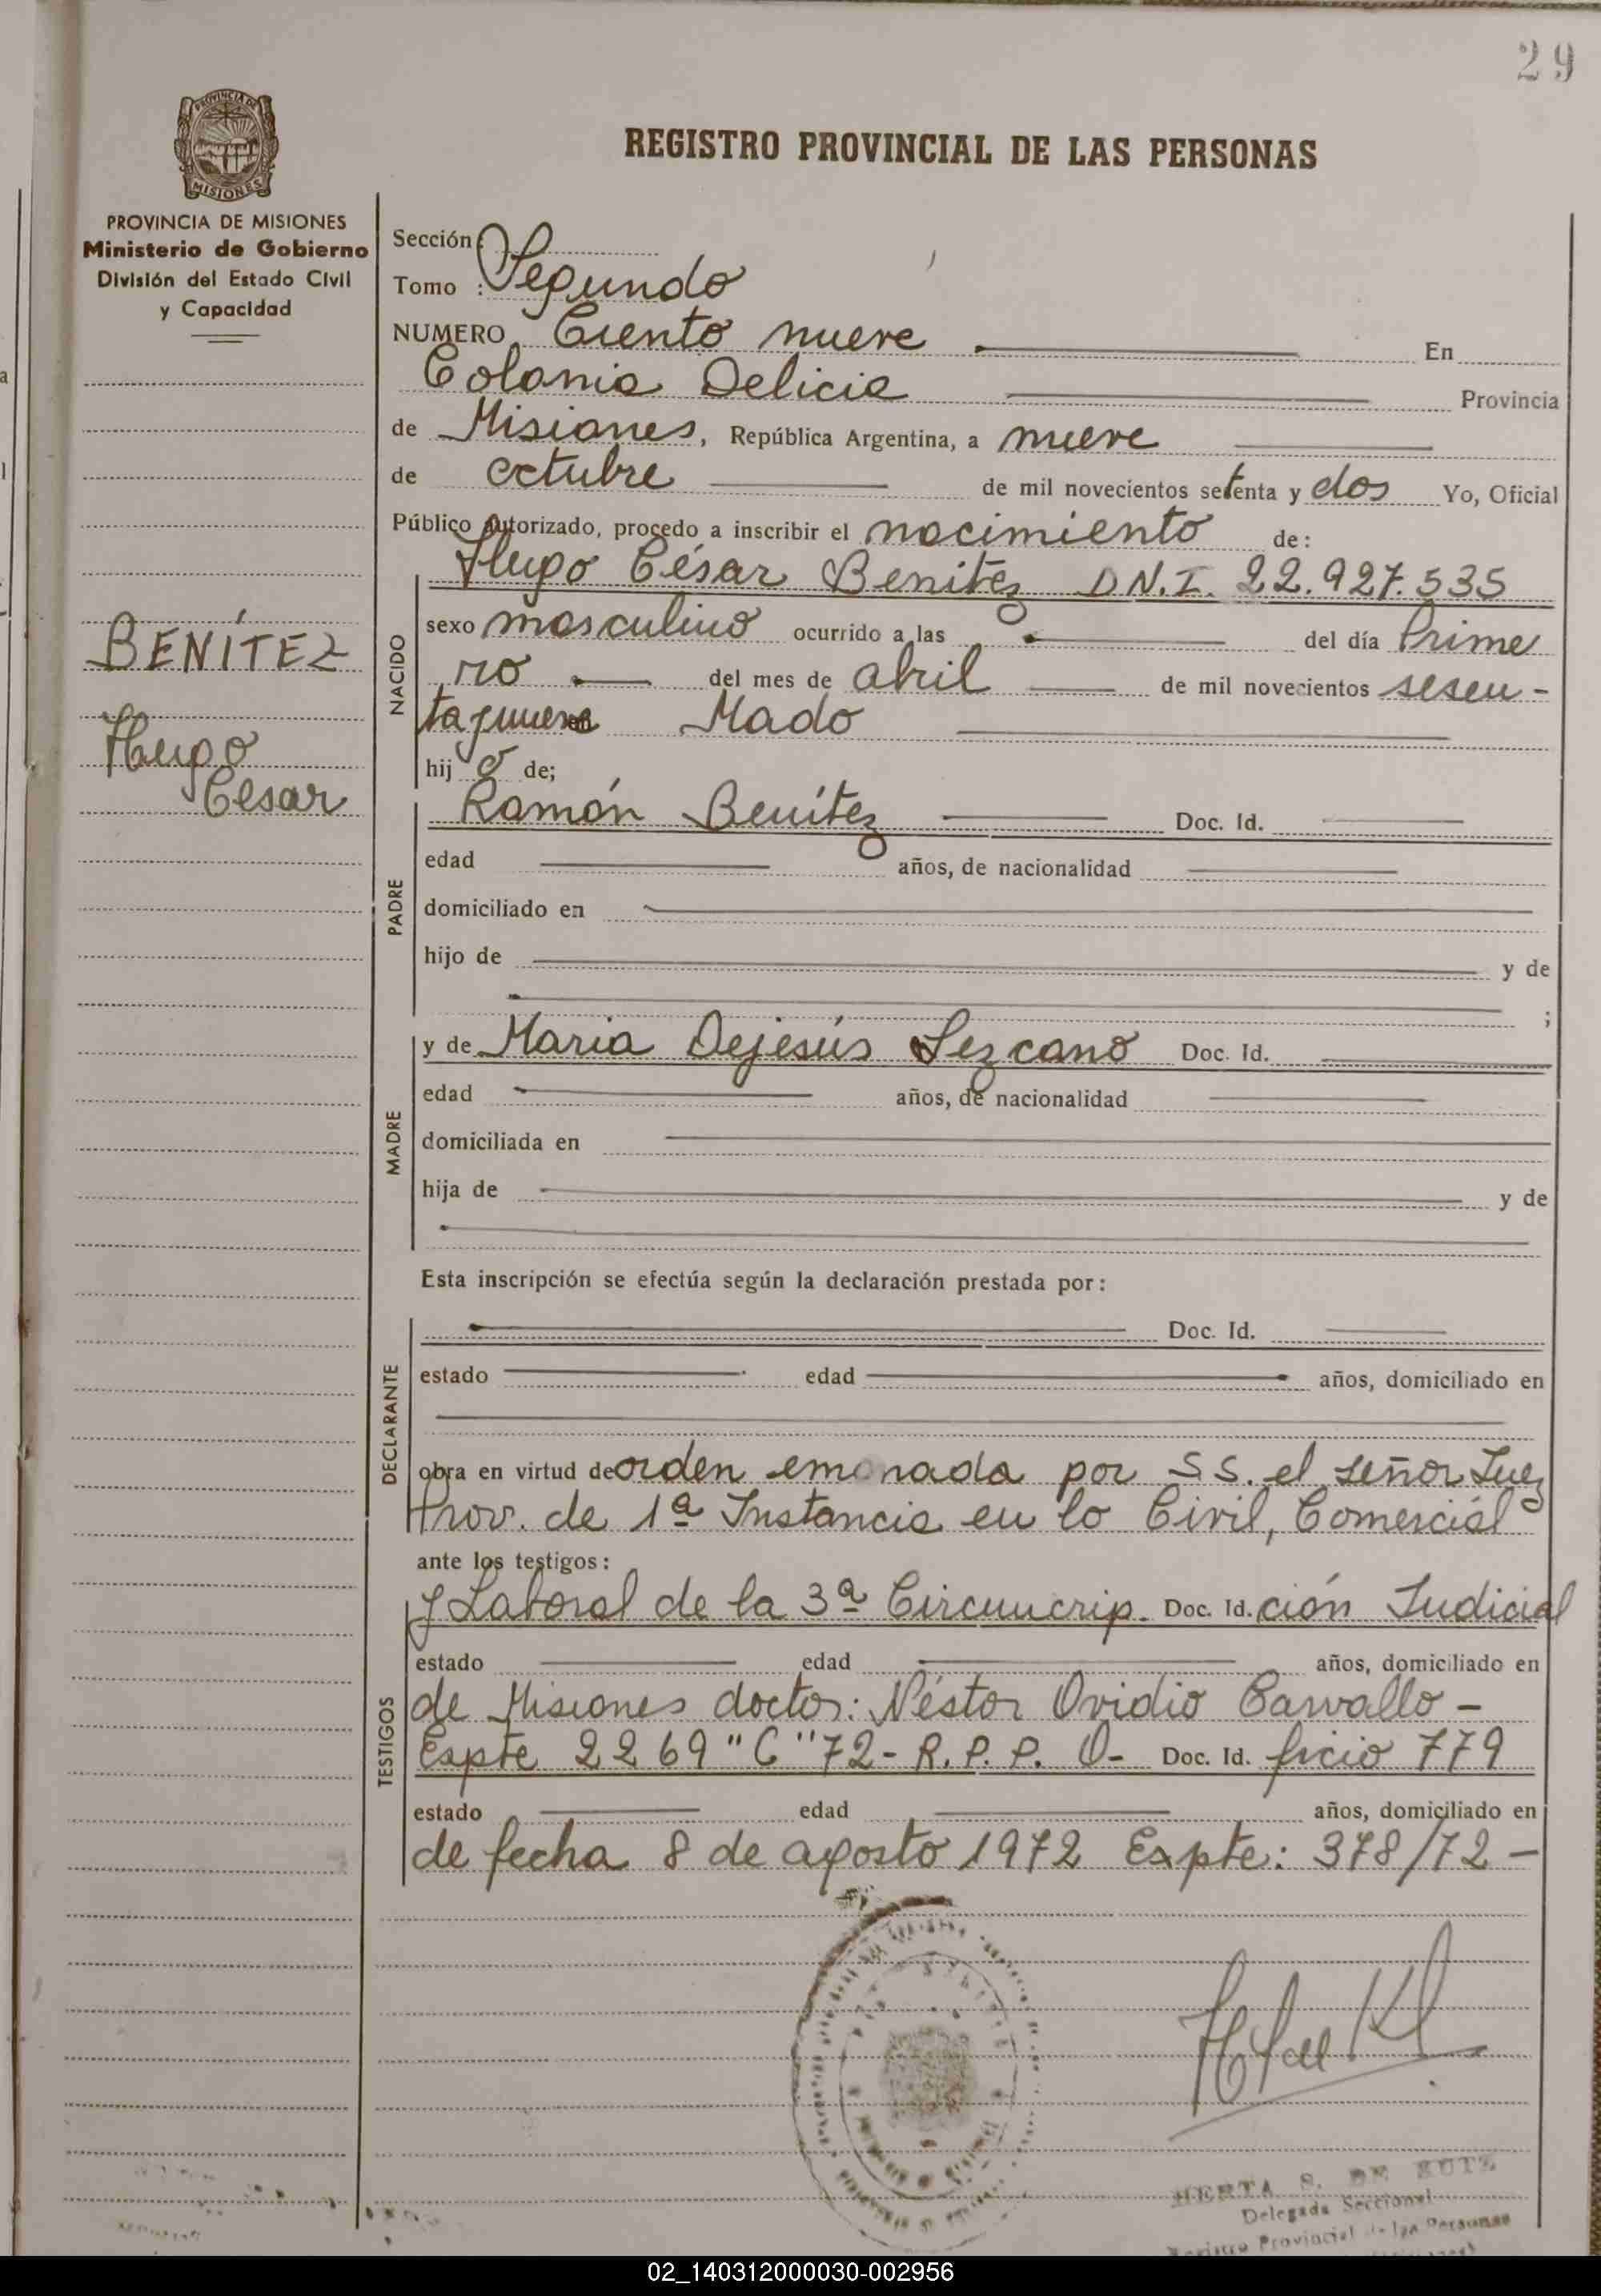 29
PROVINCIA DE
MISIONES
REGISTRO PROVINCIAL DE LAS PERSONAS
PROVINCIA DE MISIONES
Ministerio de Gobierno
División del Estado Civil
y Capacidad
BENÍTEZ
Hugo
César
Sección:
Tomo : Segundo
NUMERO Ciento nueve En
Colonia Delicia Provincia
de Misiones, República Argentina, a nueve
de octubre de mil novecientos setenta y dos Yo, Oficial
Público autorizado, procedo a inscribir el nacimiento de:
NACIDO
Hugo César Benítez D.N.I. 22.927.535
sexo masculino ocurrido a las del día Prime
ro del mes de abril de mil novecientos sesen-
ta y nueve en Mado
hijo de;
PADRE
Ramón Benítez Doc. Id.
edad años, de nacionalidad
domiciliado en
hijo de y de
;
MADRE
y de Maria Dejesús Lezcano Doc. Id.
edad años, de nacionalidad
domiciliada en
hija de y de
Esta inscripción se efectúa según la declaración prestada por:
DECLARANTE
Doc. Id.
estado edad años, domiciliado en
obra en virtud de orden emanada por S S. el señor Juez
Prov. de 1ª Instancia en lo Civil, Comercial
ante los testigos:
TESTIGOS
y Laboral de la 3ª Circuncrip. Doc. Id. ción Judicial
estado edad años, domiciliado en
de Misiones doctor: Néstor Ovidio Carvallo -
Expte 2269 "C" 72 - R.P.P. O- Doc. Id. ficio 779
estado edad años, domiciliado en
de fecha 8 de agosto 1972 Expte: 378/72 -
HERTA S. DE
Delegada Seccional
Registro Provincial de las Personas
02_140312000030-002956